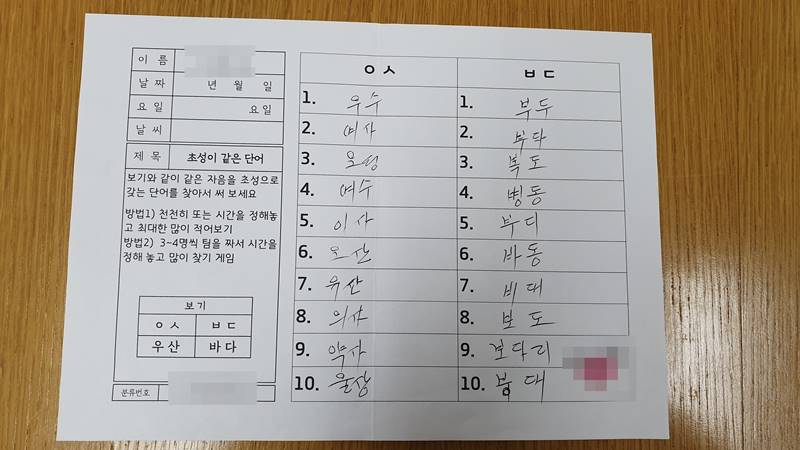 이 름
날 짜 년 월 일
요 일 요 일
날 씨
제 목 초성이 같은 단어
보기와 같이 같은 자음을 초성으로
갖는 단어를 찾아서 써 보세요
방법1) 천천히 또는 시간을 정해놓
고 최대한 많이 적어보기
방법2) 3~4명씩 팀을 짜서 시간을
정해 놓고 많이 찾기 게임
보 기
ㅇ ㅅ ㅂ ㄷ
우 산 바 다
분류번호
ㅇ ㅅ
1. 우수
2. 여사
3.
4. 여수
5. 이사
6. 오산
7. 유산
8. 의사
9. 약사
10. 울상
ㅂ ㄷ
1. 부두
2. 부다
3. 복도
4. 병동
5. 부디
6. 바동
7. 비대
8. 보도
9. 보다리
10. 붕대